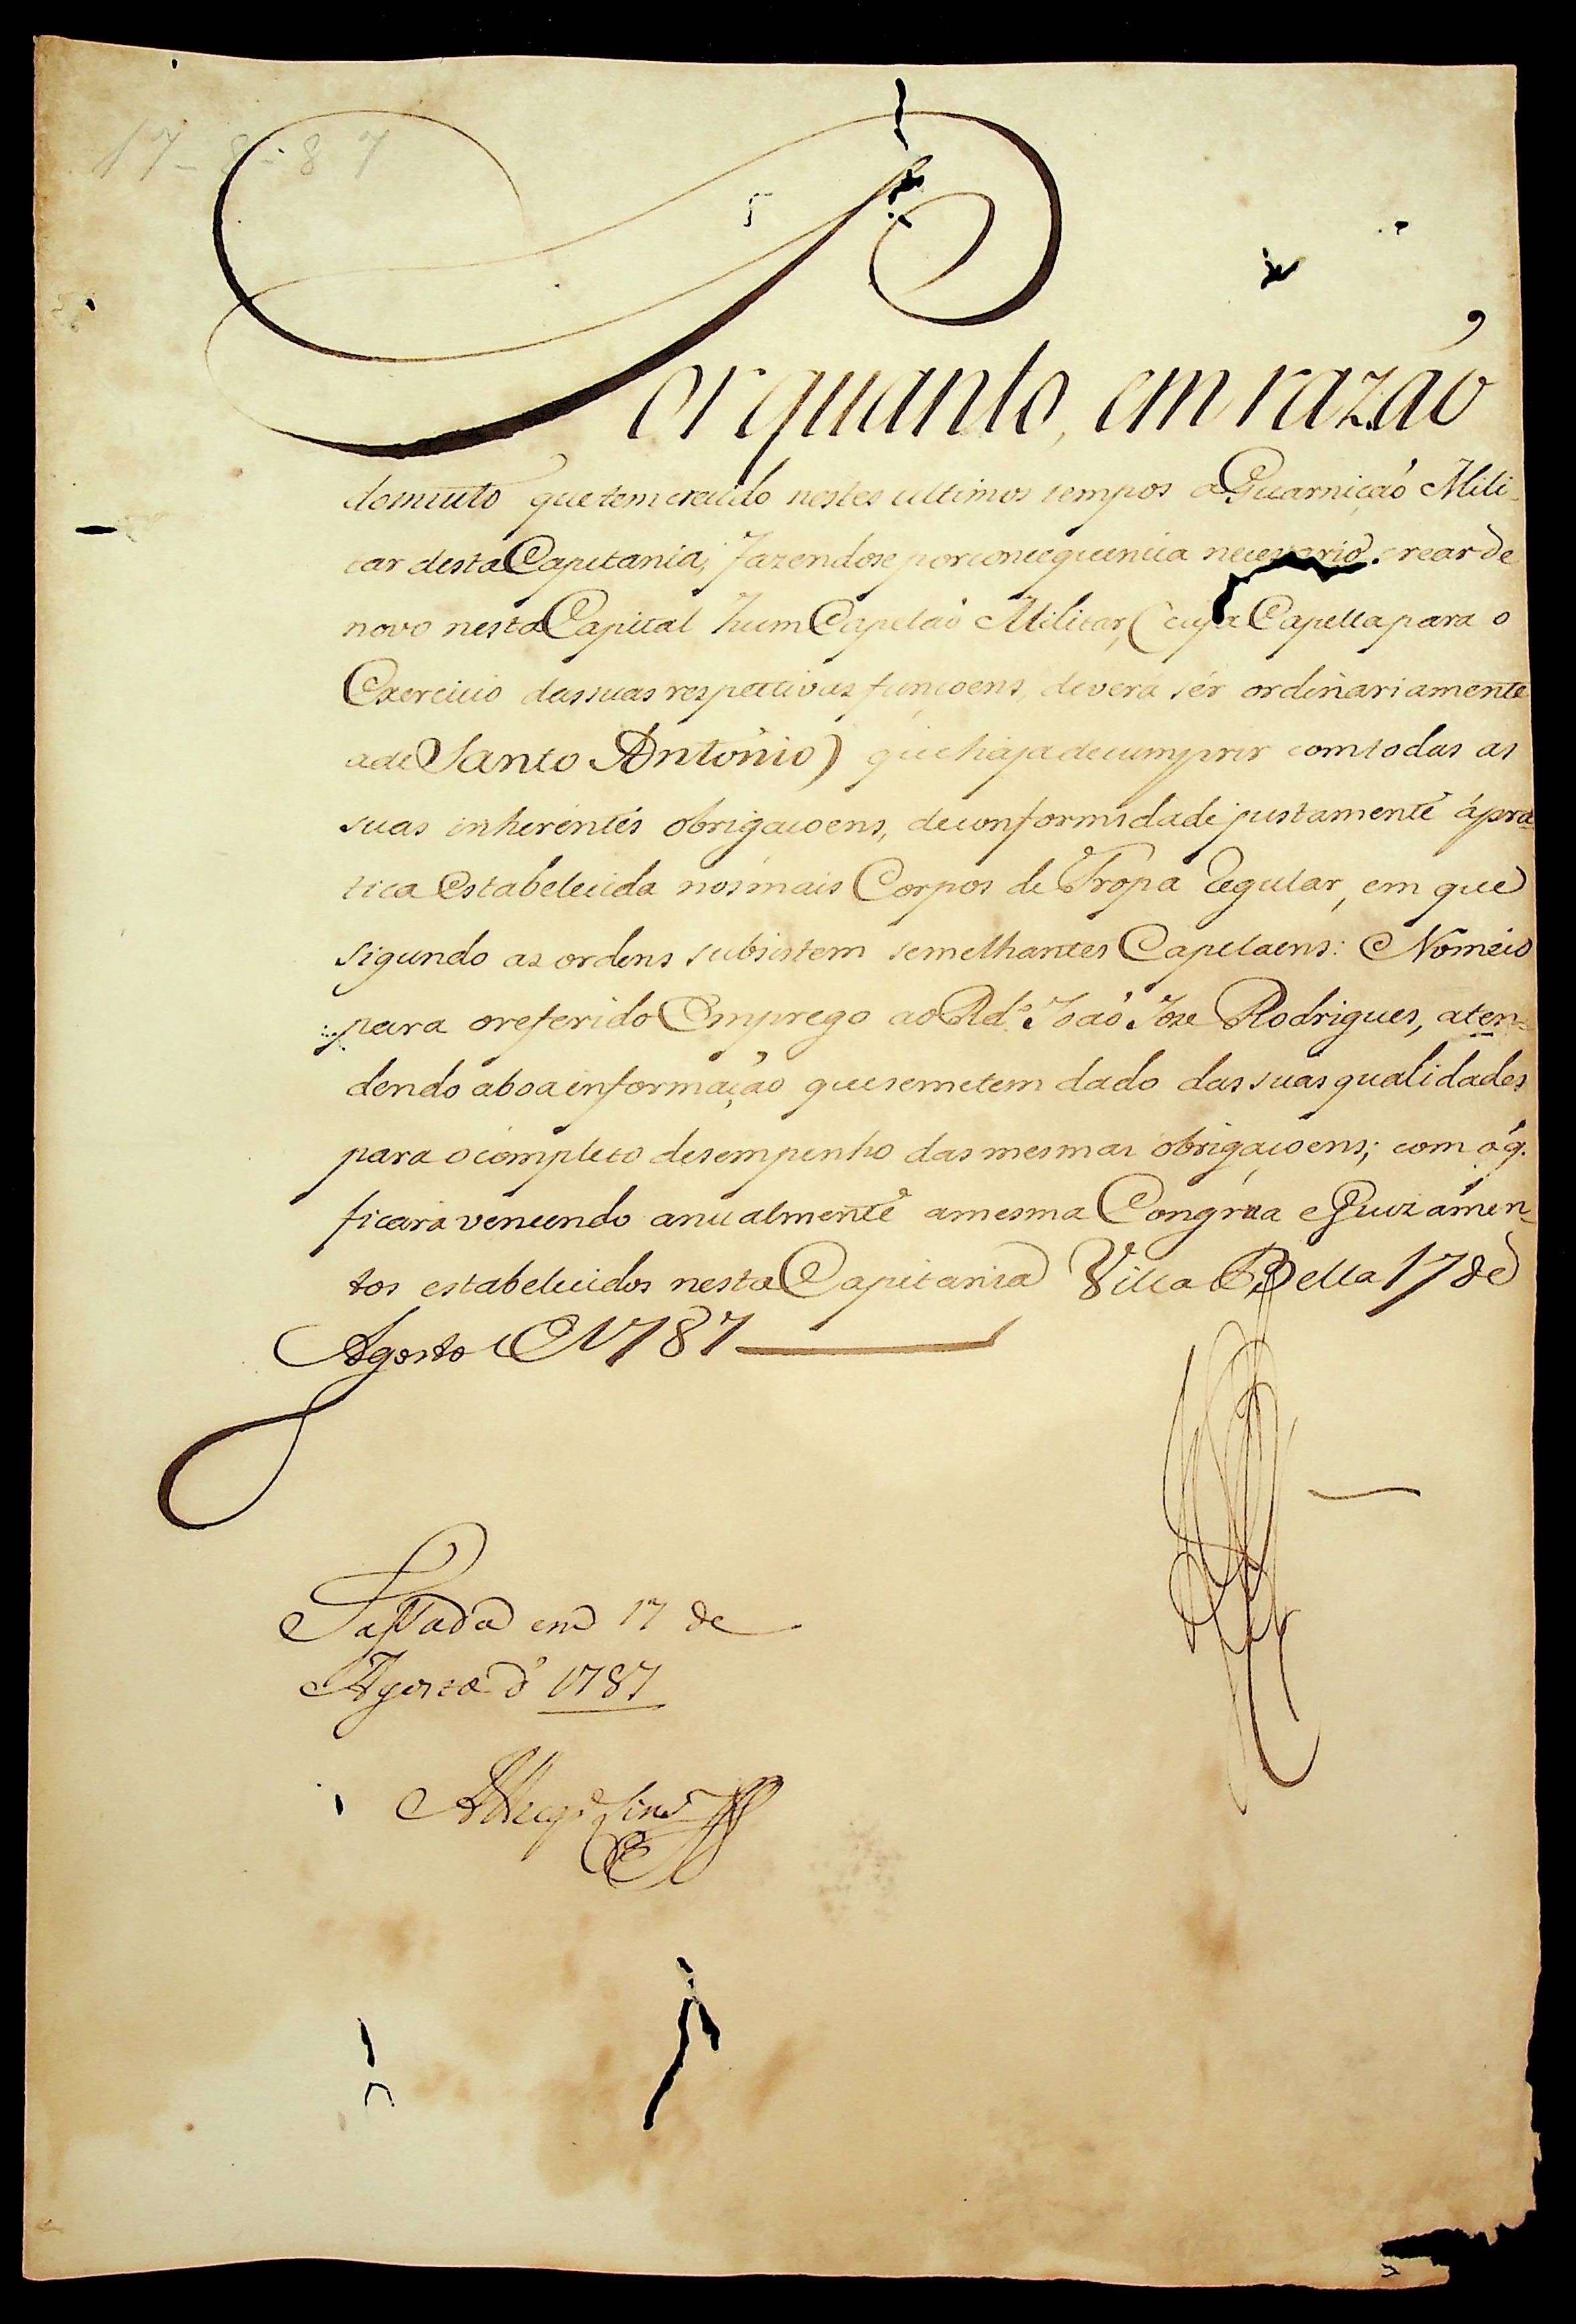 17-8-87
Porquanto, em razaõ
domuito que tem crecido nestes ultimos tempos a Guarniçaõ Mili-
tar desta Capitania, fazendose por concequencia necessario crear de
novo nesta Capital hum Capelaõ Militar, (cuja Capella para o
Exercicio das suas respectivas funçoens, deverá sér ordinariamente
a de Santo Antonio) que haja de cumprir com todas as
suas inherentes obrigaçoens, de conformidade justamente á pra-
tica estabelecida nos mais Corpos de Tropa Regular, em que
sigundo as ordens subsistem semelhantes Capelaens: Nomeio
para o referido Emprego ao Rdo. Joaõ Joze Rodrigues, aten-
dendo a boa informaçaõ que se me tem dado das suas qualidades
para o completo desempenho das mesmas obrigaçoens; com o q.
ficará vencendo anualmente a mesma Congrua e Guizamen-
tos estabelecidos nesta Capitania Villa Bella 17 de
Agosto de 1787
Passada em 17 de
Agosto d' 1787